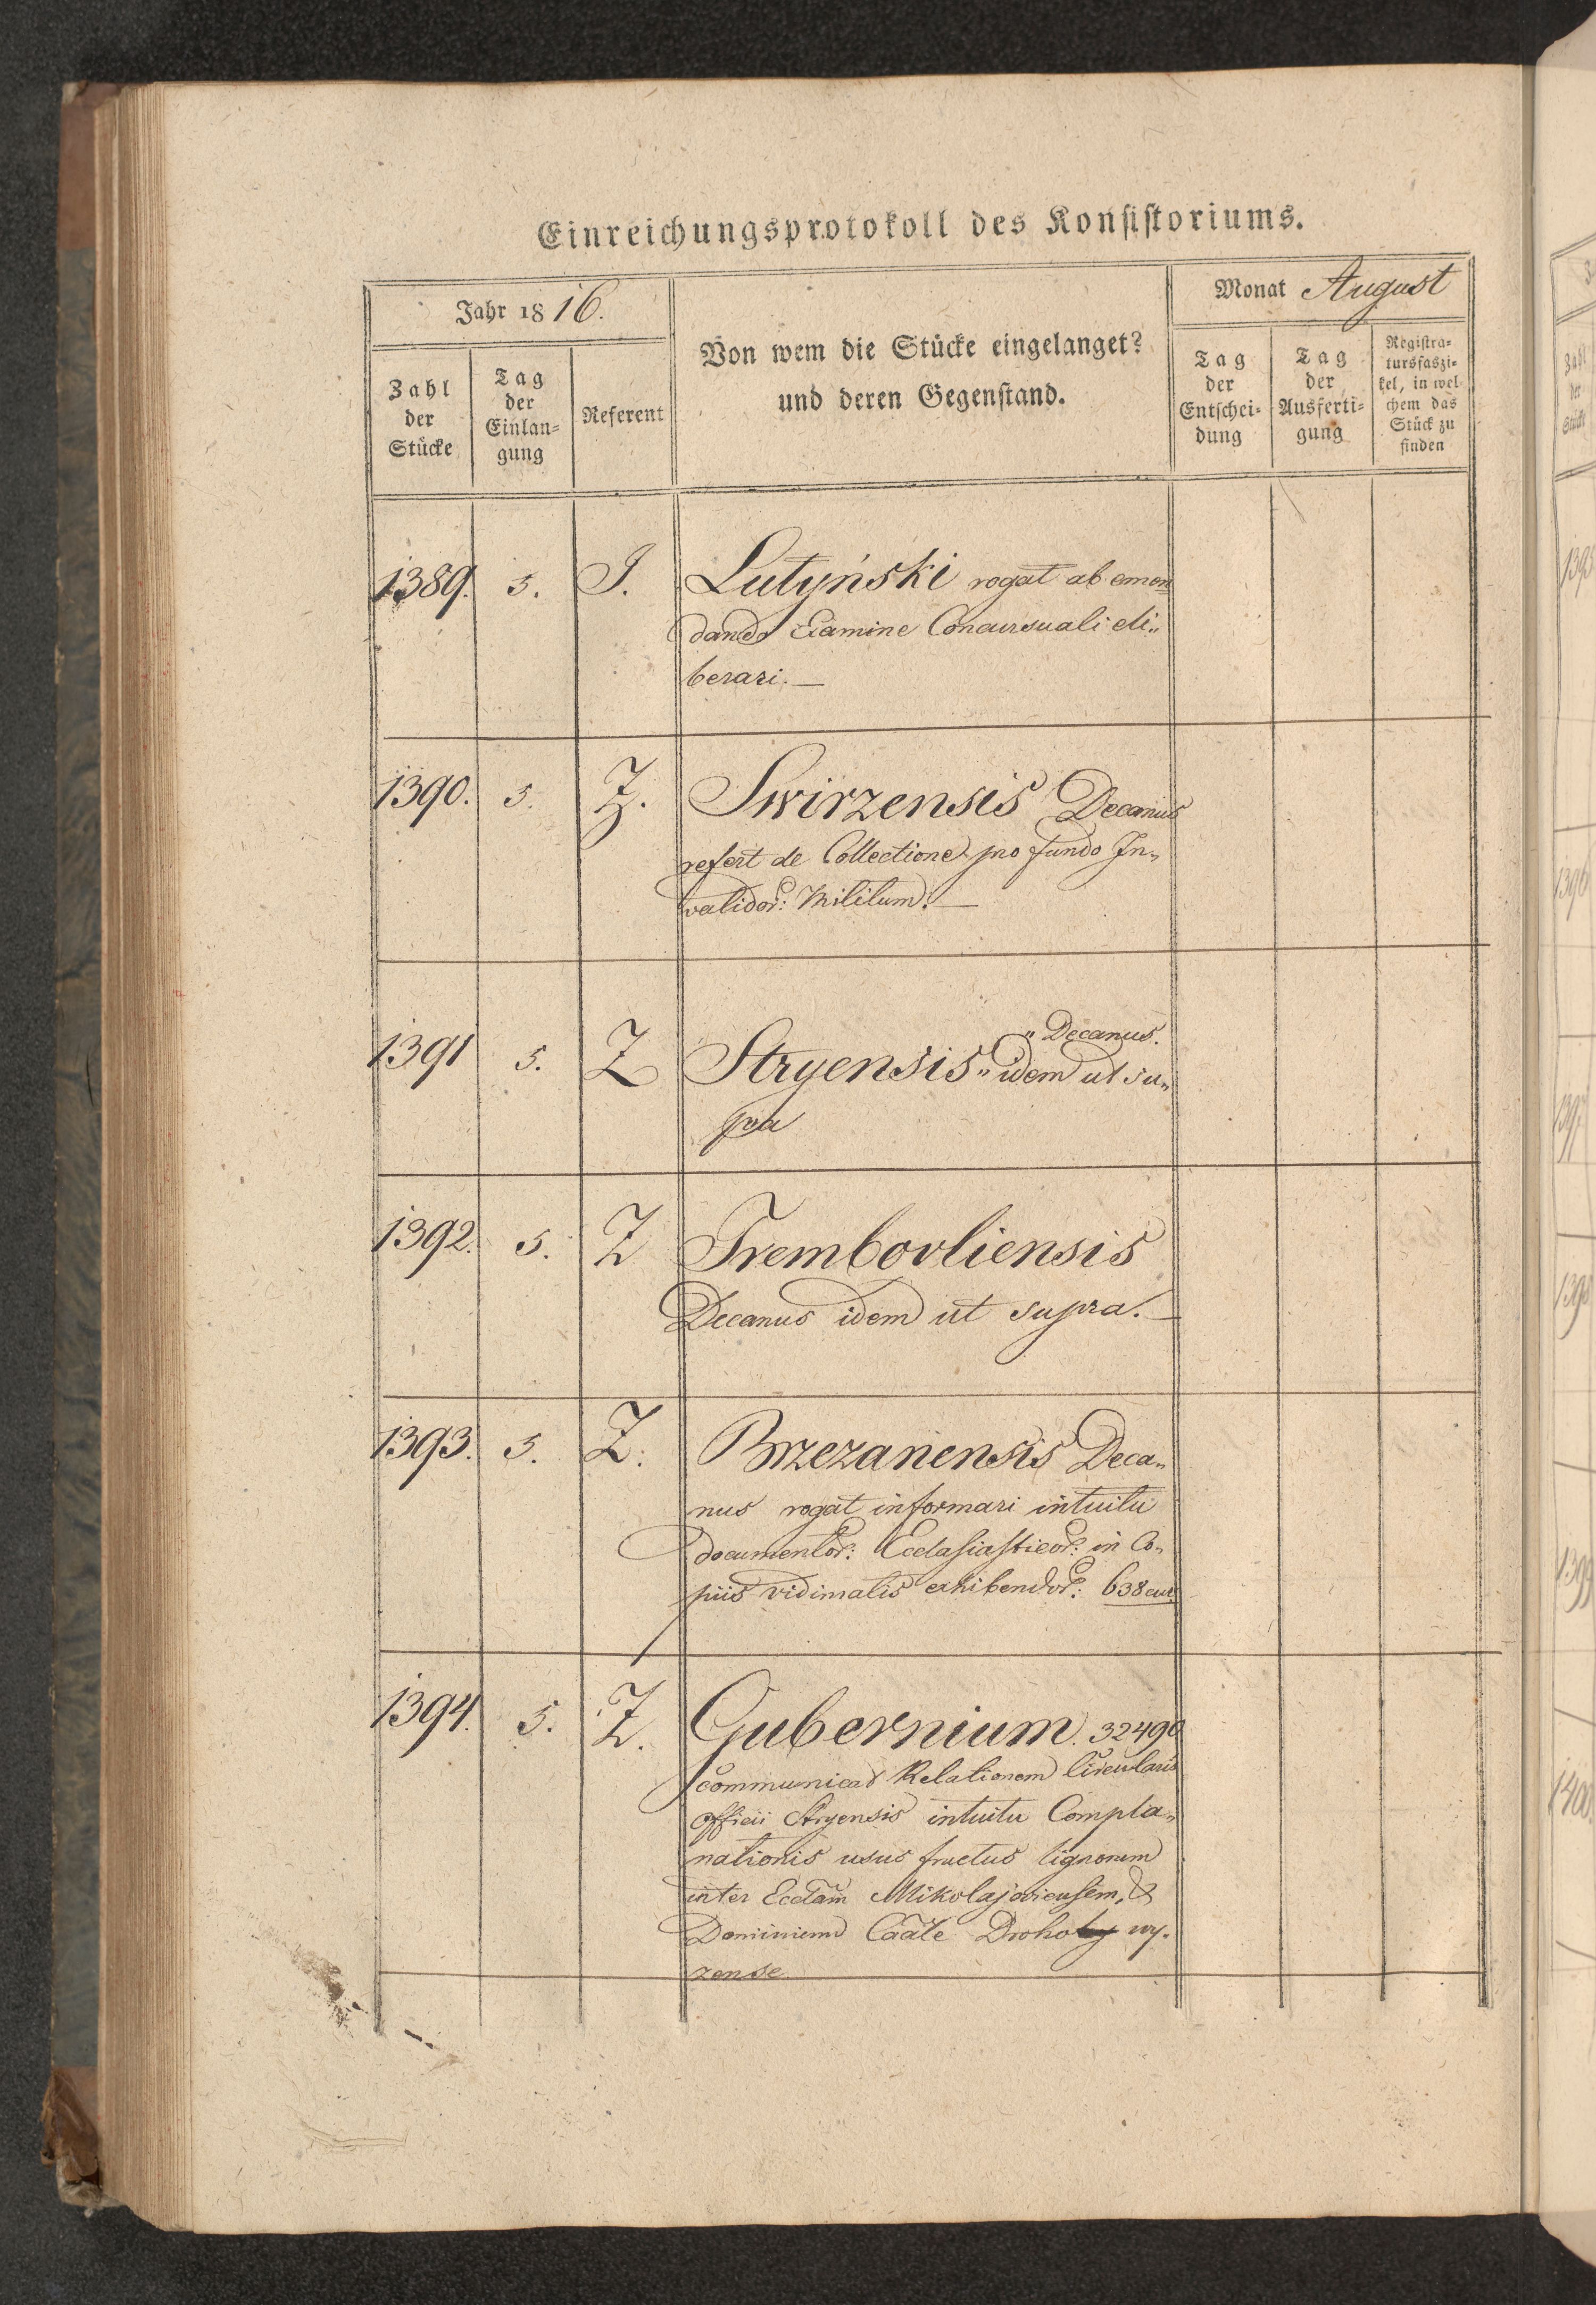 Einreichungsprotokoll des Konsistoriums.
Jahr 1816.
Monat August
Zahl der Stücke
Tag der Einlangung
Referent
Von wem die Stücke eingelanget?
und deren Gegenstand.
Tag der Entscheidung
Tag der Ausfertigung
Registratursfaszikel, in welchem das Stück zu finden
1389. 5. J. Lutyński rogat ab emen
dando Examine Concursuali eli„
berari.—
1390. 5. Z. Swirzensis Decanus
refert de Collectione pro fundo In„
validor: Militum.—
1391 5. Z Stryensis „ Decanus.
„ idem ut su„
pra
1392. 5. Z Trembovliensis
Decanus idem ut supra.—
1393. 5. Z. Brzezanensis Deca„
nus rogat informari intuitu
documentor: Ecclasiasticor: in Co„
piis vidimatis exhibendor: 638 cur.
1394. 5. Z. Gubernium. 32490
communicat Relationem Circularis
officii Stryensis intuitu Compla„
nationis usus fructus lignorum
inter Ecclam Mikolajoviensem, &
Dominium Caale Drohoby wy.
zense